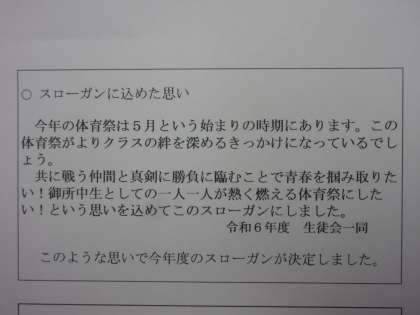 ○ スローガンに込めた思い
今年の体育祭は５月という始まりの時期にあります。この
体育祭がよりクラスの絆を深めるきっかけになっているでし
ょう。
共に戦う仲間と真剣に勝負に臨むことで青春を掴み取りた
い！御所中生としての一人一人が熱く燃える体育祭にした
い！という思いを込めてこのスローガンにしました。
令和６年度　生徒会一同
このような思いで今年度のスローガンが決定しました。